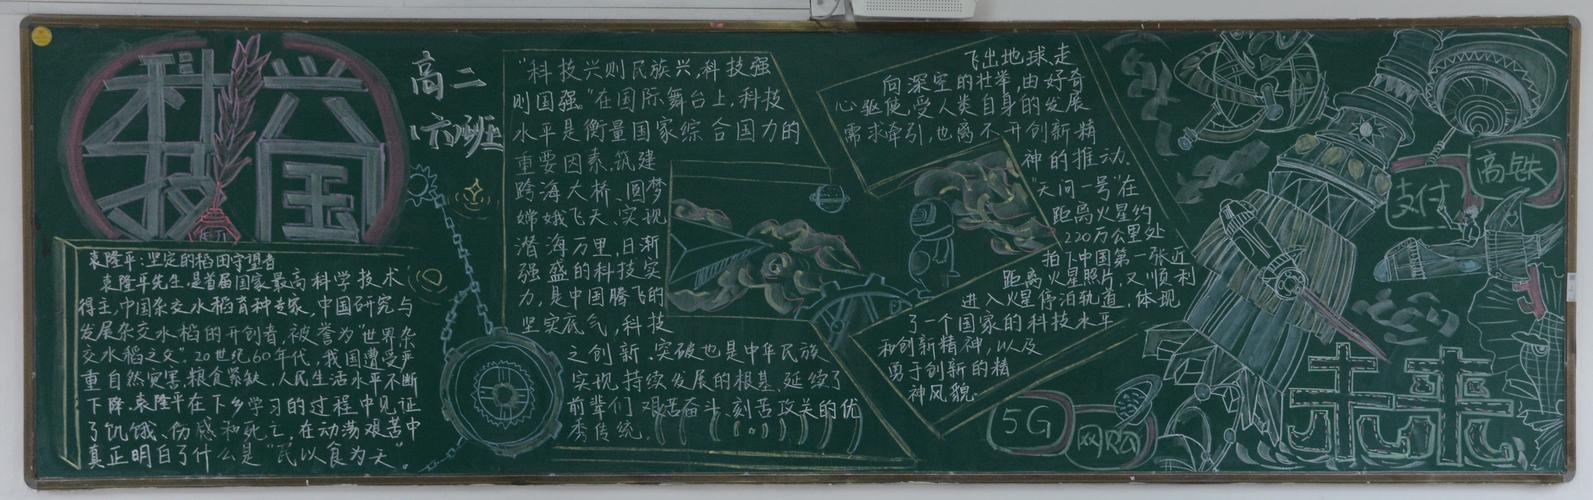 科技兴国
高二
(六)班
袁隆平:坚定的稻田守望者
袁隆平先生,是首届国家最高科学技术
得主,中国杂交水稻育种专家,中国研究与
发展杂交水稻的开创者,被誉为“世界杂
交水稻之父”。20世纪60年代,我国遭受严
重自然灾害,粮食紧缺,人民生活水平不断
下降.袁隆平在下乡学习的过程中见证
了饥饿、伤感和死亡,在动荡艰苦中
真正明白了什么是“民以食为天”。
“科技兴则民族兴,科技强
则国强。”在国际舞台上,科技
水平是衡量国家综合国力的
重要因素.筑建
跨海大桥、圆梦
嫦娥飞天、实现
潜海万里,日渐
强盛的科技实
力,是中国腾飞的
坚实底气,科技
之创新、突破也是中华民族
实现持续发展的根基.延续了
前辈们艰苦奋斗、刻苦攻关的优
秀传统.
飞出地球走
向深空的壮举,由好奇
心驱使,受人类自身的发展
需求牵引,也离不开创新精
神的推动.
“天问一号”在
距离火星约
220万公里处
拍下中国第一张近
距离火星照片,又顺利
进入火星停泊轨道,体现
了一个国家的科技水平
和创新精神,以及
勇于创新的精
神风貌.
高铁
支付
5G
网购
未来